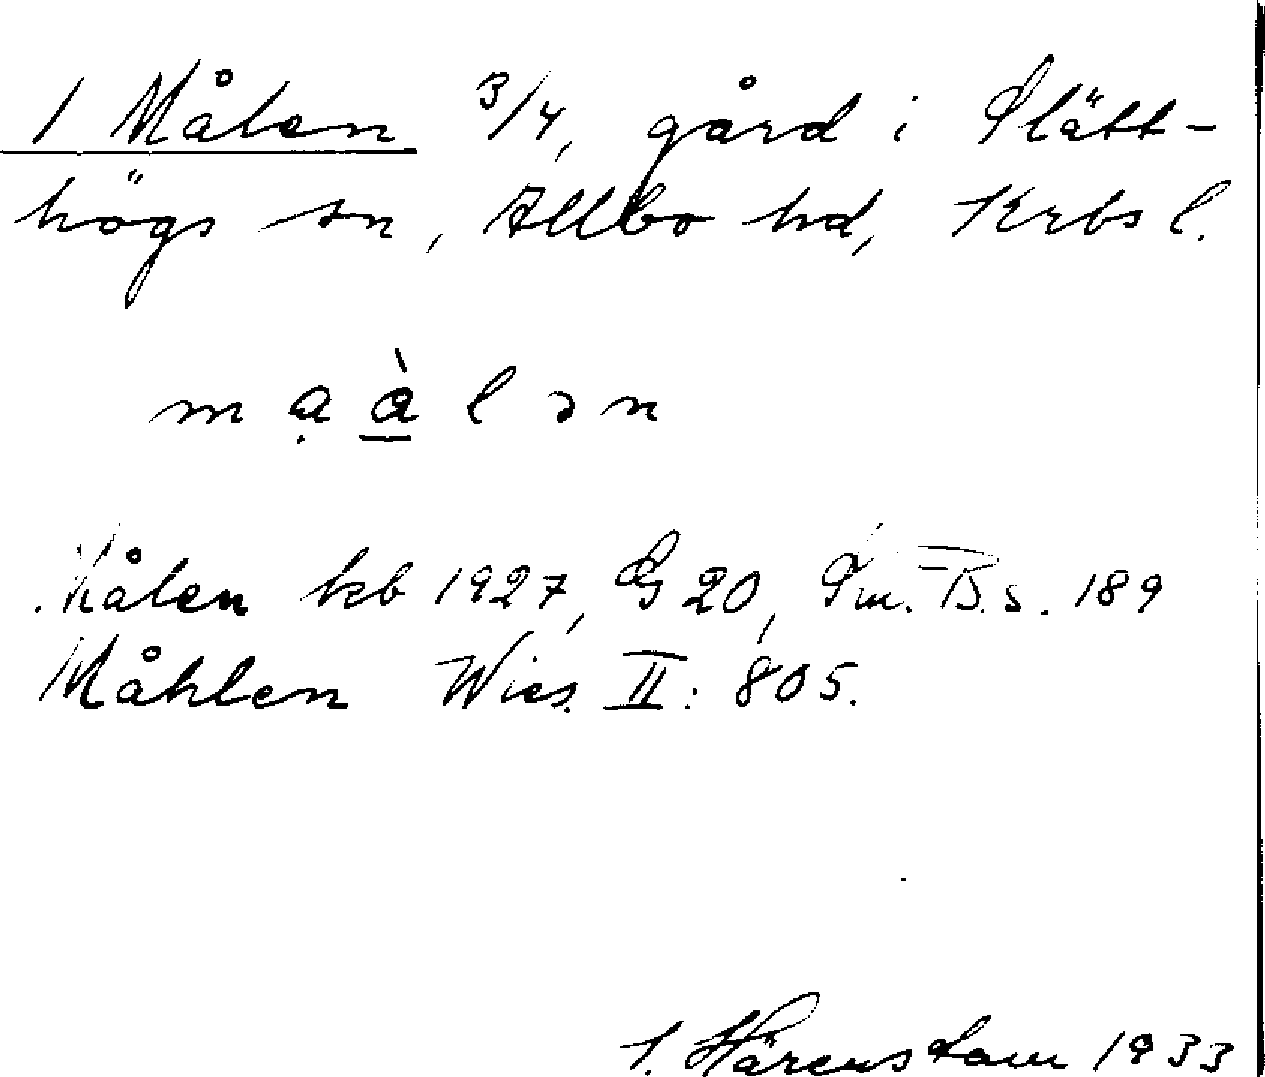 1 Målen 3/4, gård i Slätt-
högs sn, Allbo hd, Krbs l.
m ạ à̲ l ə n
Målen kb 1927, G 20, Sm. B. s. 189
Måhlen Wies. II: 805.
S. Härenstam 1933